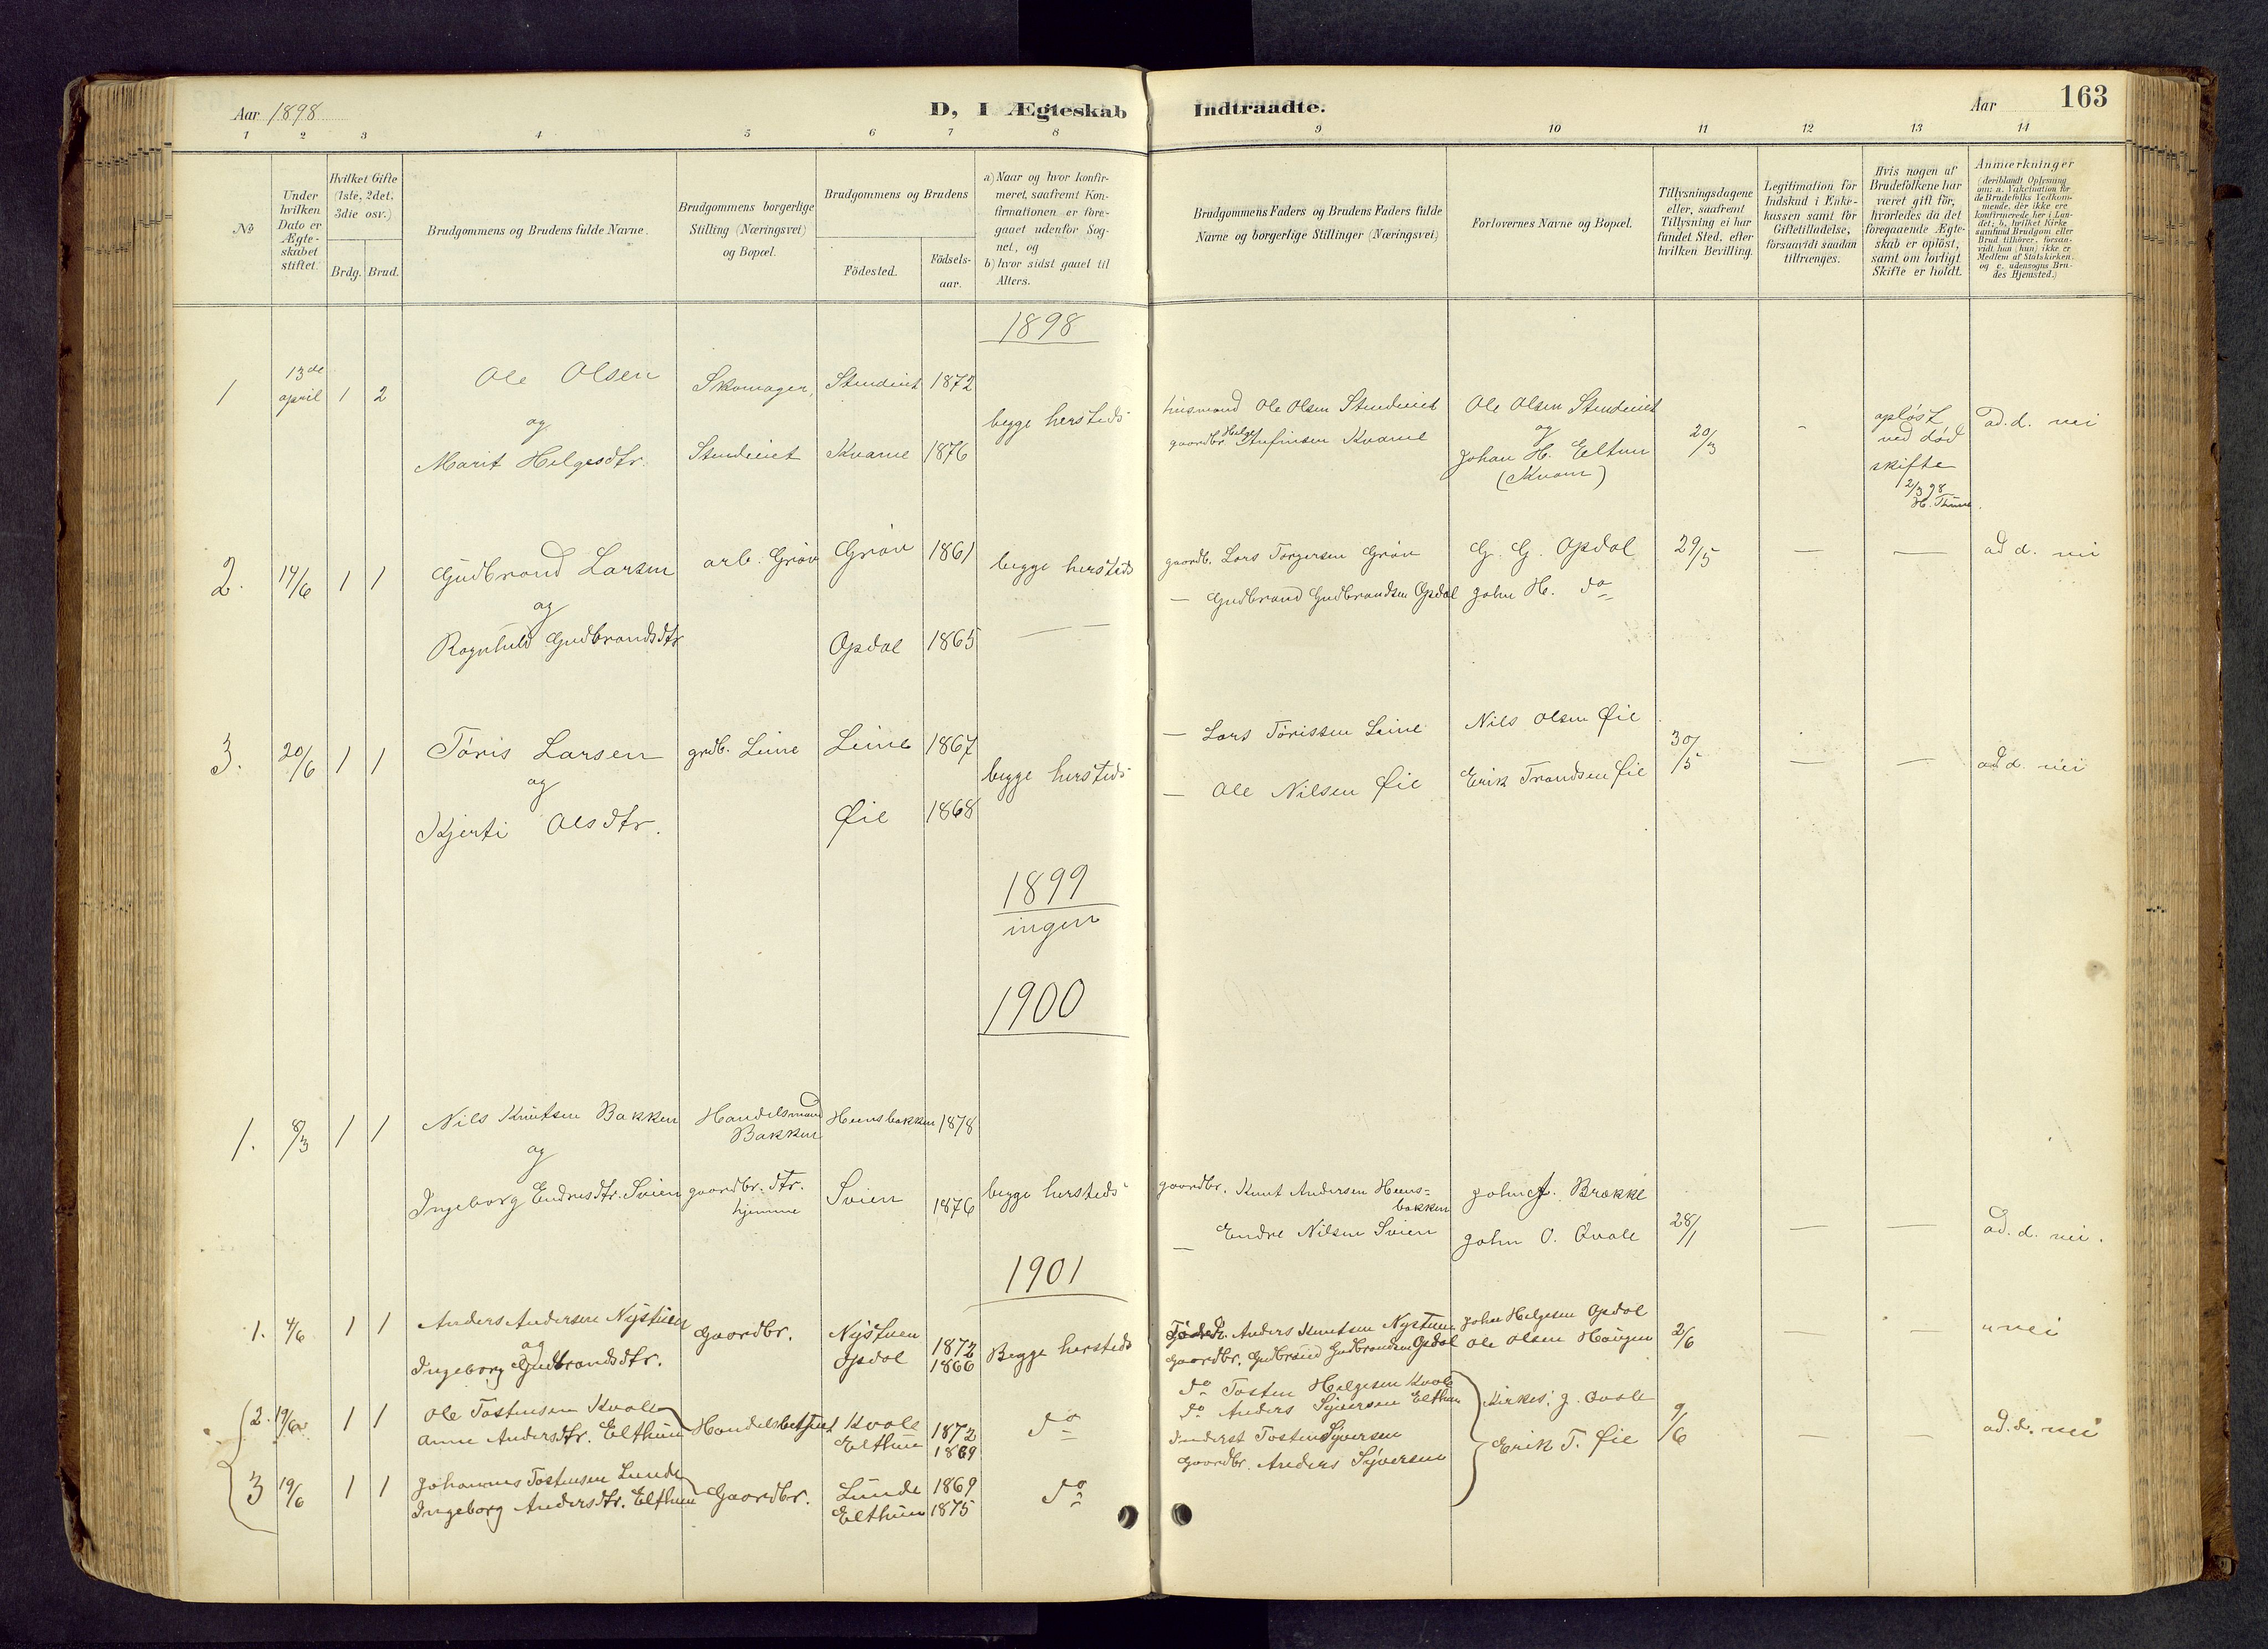 Aar 1898
D, I Ægteskab Indtraadte.
Aar
163
1 2 3 4 5 6 7 8 9 10 11 12 13 14
No
Under hvilken Dato er Ægteskabet stiftet.
Hvilket Gifte (1ste, 2det, 3die osv.)
Brdg. Brud.
Brudgommens og Brudens fulde Navne.
Brudgommens borgerlige Stilling (Næringsvei) og Bopæl.
Brudgommens og Brudens
Födested.
Födsels-aar.
a) Naar og hvor konfir-
meret, saafremt Kon-
firmationen er fore-
gaaet udenfor Sog-
net, og
b) hvor sidst gaaet til
Alters.
Brudgommens Faders og Brudens Faders fulde
Navne og borgerlige Stillinger (Næringsvei)
Forlovernes Navne og Bopæl.
Tillysningsdagene
eller, saafremt
Tillysning ei har
fundet Sted, efter
hvilken Bevilling.
Legitimation for
Indskud i Enke-
kassen samt for
Giftetilladelse,
forsaavidt saadan
tiltrænges.
Hvis nogen af
Brudefolkene har
været gift før,
hvorledes da det
foregaaende Ægte-
skab er oplöst,
samt om lovligt
Skifte er holdt.
Anmærkninger
(deriblandt Oplysning
om: a. Vakcination for
de Brudefolks Vedkom-
mende, der ikke ere
konfirmerede her i Lan-
det; b. hvilket Kirke-
samfund Brudgom eller
Brud tilhörer, forsaa-
vidt han (hun) ikke er
Medlem af Statskirken,
og c. udensogns Bru-
des Hjemsted.)
1898
1 13de april 1 2 Ole Olsen Skomager, Stendiiet 1872
og
Marit Helgesdtr. Stendiiet Kvame 1876
begge hersteds
husmand Ole Olsen Stendiiet
gaardbr. Helge Arnfinsen Kvame
Ole Olsen Stendiiet
og
Johan H. Eltun
(Kvam)
20/3 -
opløst
ved død
skifte
12/3 98
H. Thune.
ad. d. nei
2. 14/6 1 1 Gudbrand Larsen arb. Grøv Grøv 1861 begge hersteds
og
Ragnhild Gudbrandsdtr Opdal 1865 —
gaardb. Lars Torgersen Grøv
— Gudbrand Gudbrandsen Opdal
G. G. Opdal
John H. do
29/5 — — ad d. nei
3. 20/6 1 1 Tøris Larsen grdb. Leine Leine 1867
og
Kjersti Olsdtr. Øie 1868
begge hersteds
— Lars Tørissen Leine
— Ole Nilsen Øie
Nils Olsen Øie
Erik Trondsen Øie
30/5 — — ad d. nei
1899
ingen
1900
1. 8/3 1 1 Nils Knutsen Bakken Handelsmand Bakken Heensbakken 1878
og
Ingeborg Endresdtr. Svien gaardbr. dtr. hjemme Svien 1876
begge hersteds
gaardbr. Knut Andersen Heens=
bakken
— Endre Nilsen Svien
John A. Brække
John O. Qvale
28/1 — — ad. d. nei.
1901
1. 4/6 1 1 Anders Andersen Nystuen Gaardbr. Nystuen 1872
og
Ingeborg Gudbrandsdtr. Opdal 1866
Begge hersteds
Anders Knutsen Nystuen
Gaardbr. Gudbrand Gudbrandsen Opdal
John Helgesen Opdal
Ole Olsen Haugen
2/6 — - " nei
2. 19/6 1 1 Ole Tostensen Kvale Handelsbetjent Kvale 1872
Anne Andersdtr. Elthun Elthun 1869
do
do Tosten Helgesen Kvale
do Anders Syversen Elthun
Kirkes. J. Qvale
3 19/6 1 1 Johannes Tostensen Lunde Gaardbr. Lunde 1869
Ingeborg Andersdtr. Elthun Elthun 1875
do
Tosten Syversen
Gaardbr. Anders Syversen
Erik T. Øie
9/6 — — ad. d. nei